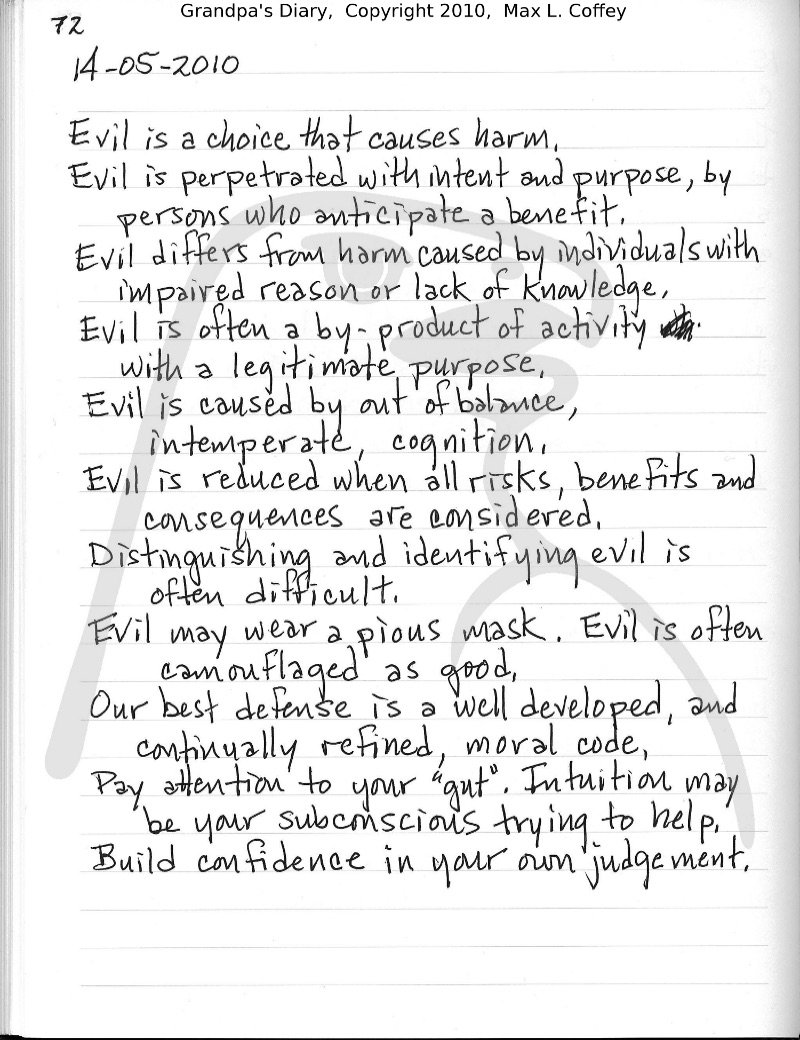 Grandpa's Diary, Copyright 2010, Max L. Coffey
72
14-05-2010
Evil is a choice that causes harm.
Evil is perpetrated with intent and purpose, by
persons who anticipate a benefit.
Evil differs from harm caused by individuals with
impaired reason or lack of knowledge.
Evil is often a by-product of activity
with a legitimate purpose.
Evil is caused by out of balance,
intemperate, cognition.
Evil is reduced when all risks, benefits and
consequences are considered.
Distinguishing and identifying evil is
often difficult.
Evil may wear a pious mask. Evil is often
camouflaged as good.
Our best defense is a well developed, and
continually refined, moral code.
Pay attention to your "gut". Intuition may
be your subconscious trying to help.
Build confidence in your own judgement.